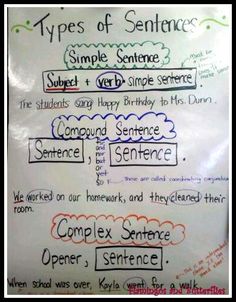 Types of Sentences
Simple Sentence
Subject + verb = simple sentence.
The students sang Happy Birthday to Mrs. Dunn.
Compound Sentence
Sentence, but sentence.
or
yet
so
these are called coordinating
We worked on our homework, and they cleaned their
room.
Complex Sentence
Opener, sentence.
When school was over, Kayla went for a walk.
Flamingos and Butterflies